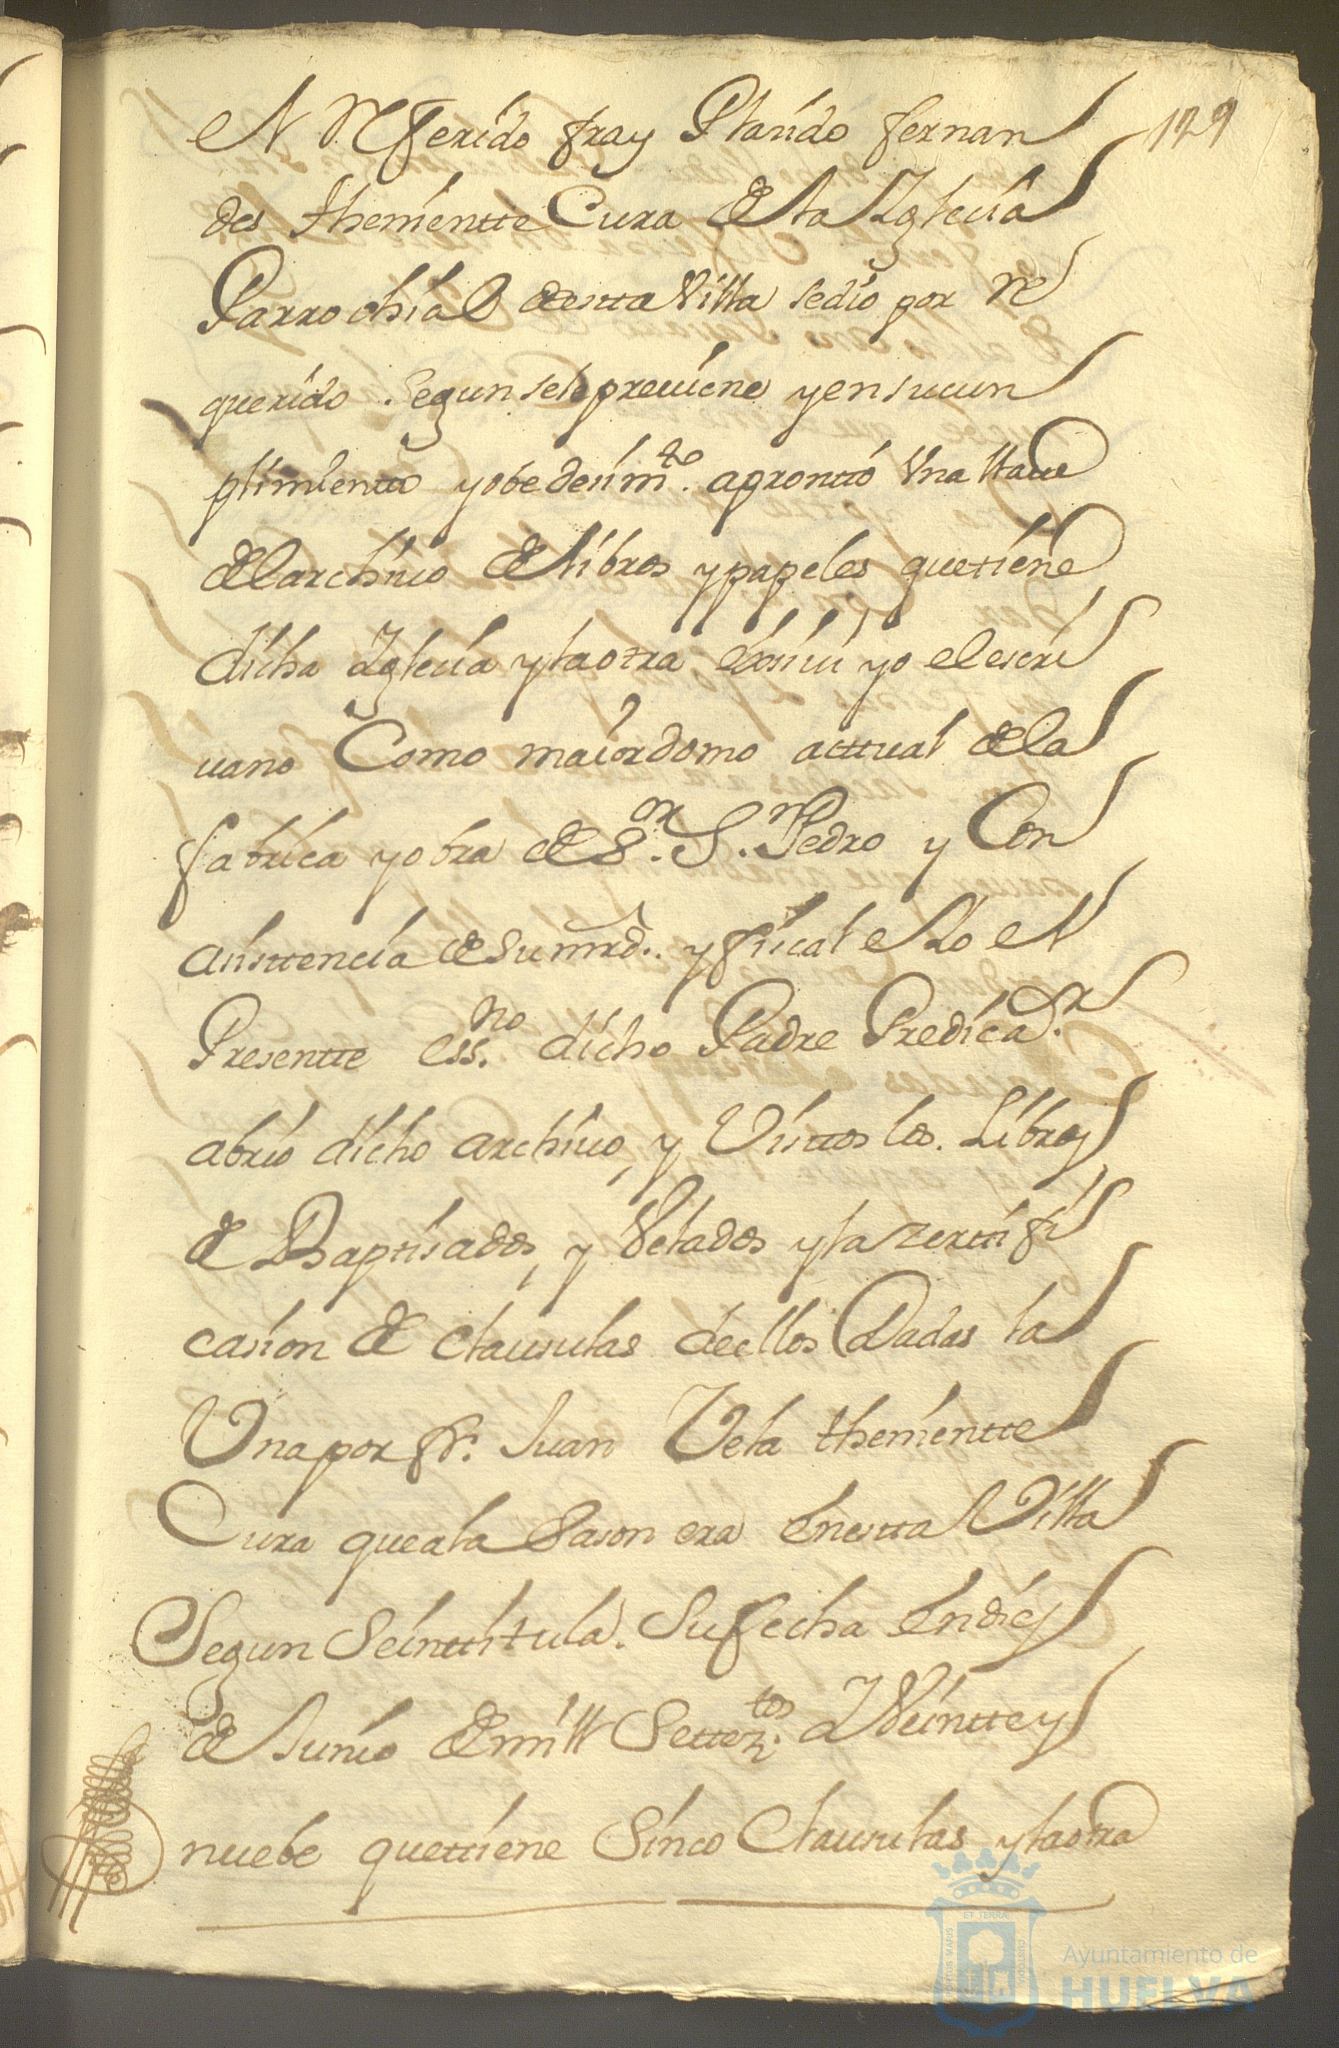 el Referido fray Plasido fernan
129
des thenientte Cura de la Yglecia
Parrochial de estta Villa se dio por re
querido segun se le previene y en su cun
plimientto y obedesim.to apronttó Una llave
del archivo de libros y papeles que tiene
dicha Yglecia y la otra exsiví yo el escri
vano Como maiordomo acttual de la
fabrica y obra de S.or S.n Pedro y Con
asisttencia de su mrd. y fiscal
Presentte ess.no dicho Padre Predica.or
abrio dicho archivo, y Visttos los Libros
de Baptisados, y Velados y la zerttifi
casion de clausulas de ellos Dadas la
Una por fr. Juan Vela thenientte
Cura que a la Sason era En estta Villa
Segun Se inttitula. Su fecha En dies
de Junio de mill Settez.tos Y Veintte y
nuebe que ttiene Sinco Clausulas y la otra
Ayuntamiento de
HUELVA